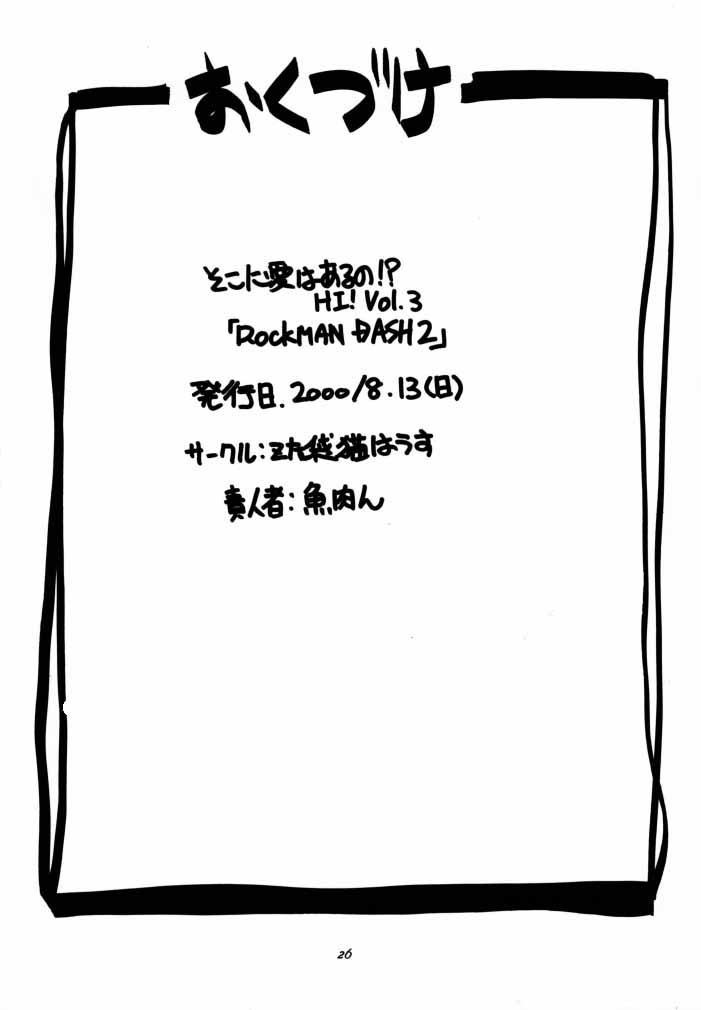 おくづけ
そこに愛はあるの!?
HI! Vol.3
「RockMAN DASH2」
発行日. 2000/8.13(日)
サークル: 猫はうす
責人者: 魚肉ん
26